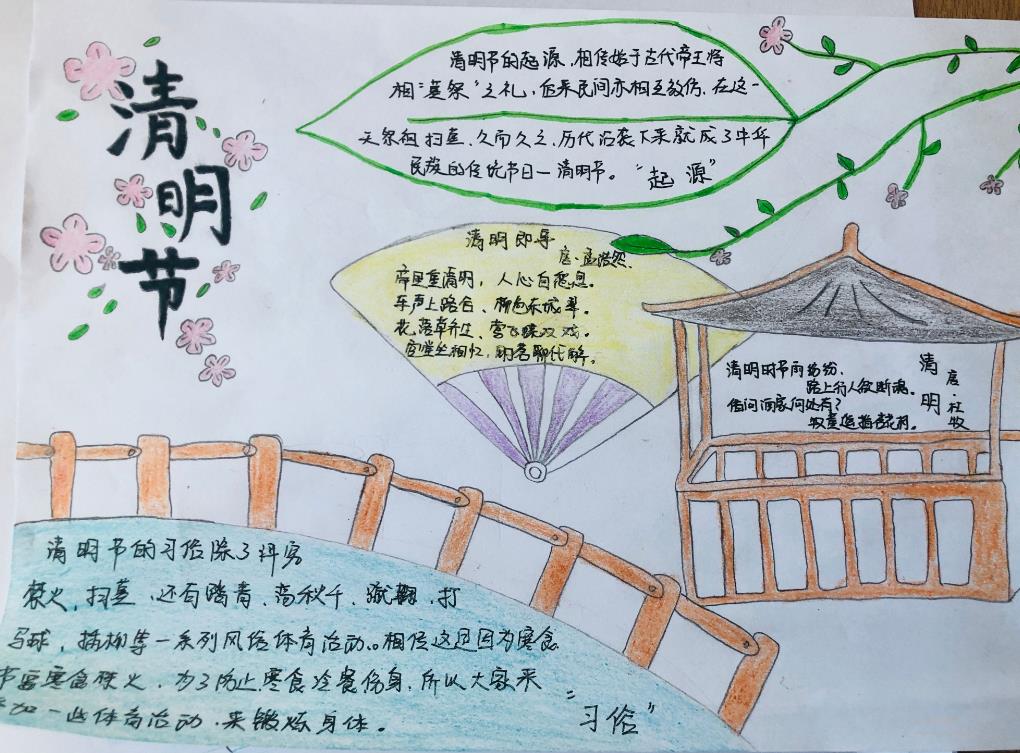 清明节
清明节的起源,相传始于古代帝王将
相"墓祭"之礼,后来民间亦相互效仿,在这一
天祭祖扫墓,久而久之,历代沿袭下来就成了中华
民族的传统节日一清明节。"起源"
清明即事
唐·孟浩然
帝里重清明,人心自愁思。
车声上路合,柳色东城翠。
花落草齐生,莺飞蝶双戏。
空堂坐相忆,酌茗聊代醉。
清明
唐·杜牧
清明时节雨纷纷,
路上行人欲断魂。
借问酒家何处有?
牧童遥指杏花村。
清明节的习俗除了讲究
禁火,扫墓,还有踏青、荡秋千、蹴鞠,打
马球,插柳等一系列风俗体育活动。相传这是因为寒食
节要寒食禁火,为了防止寒食冷餐伤身,所以大家来
参加一些体育活动,来锻炼身体。
"习俗"